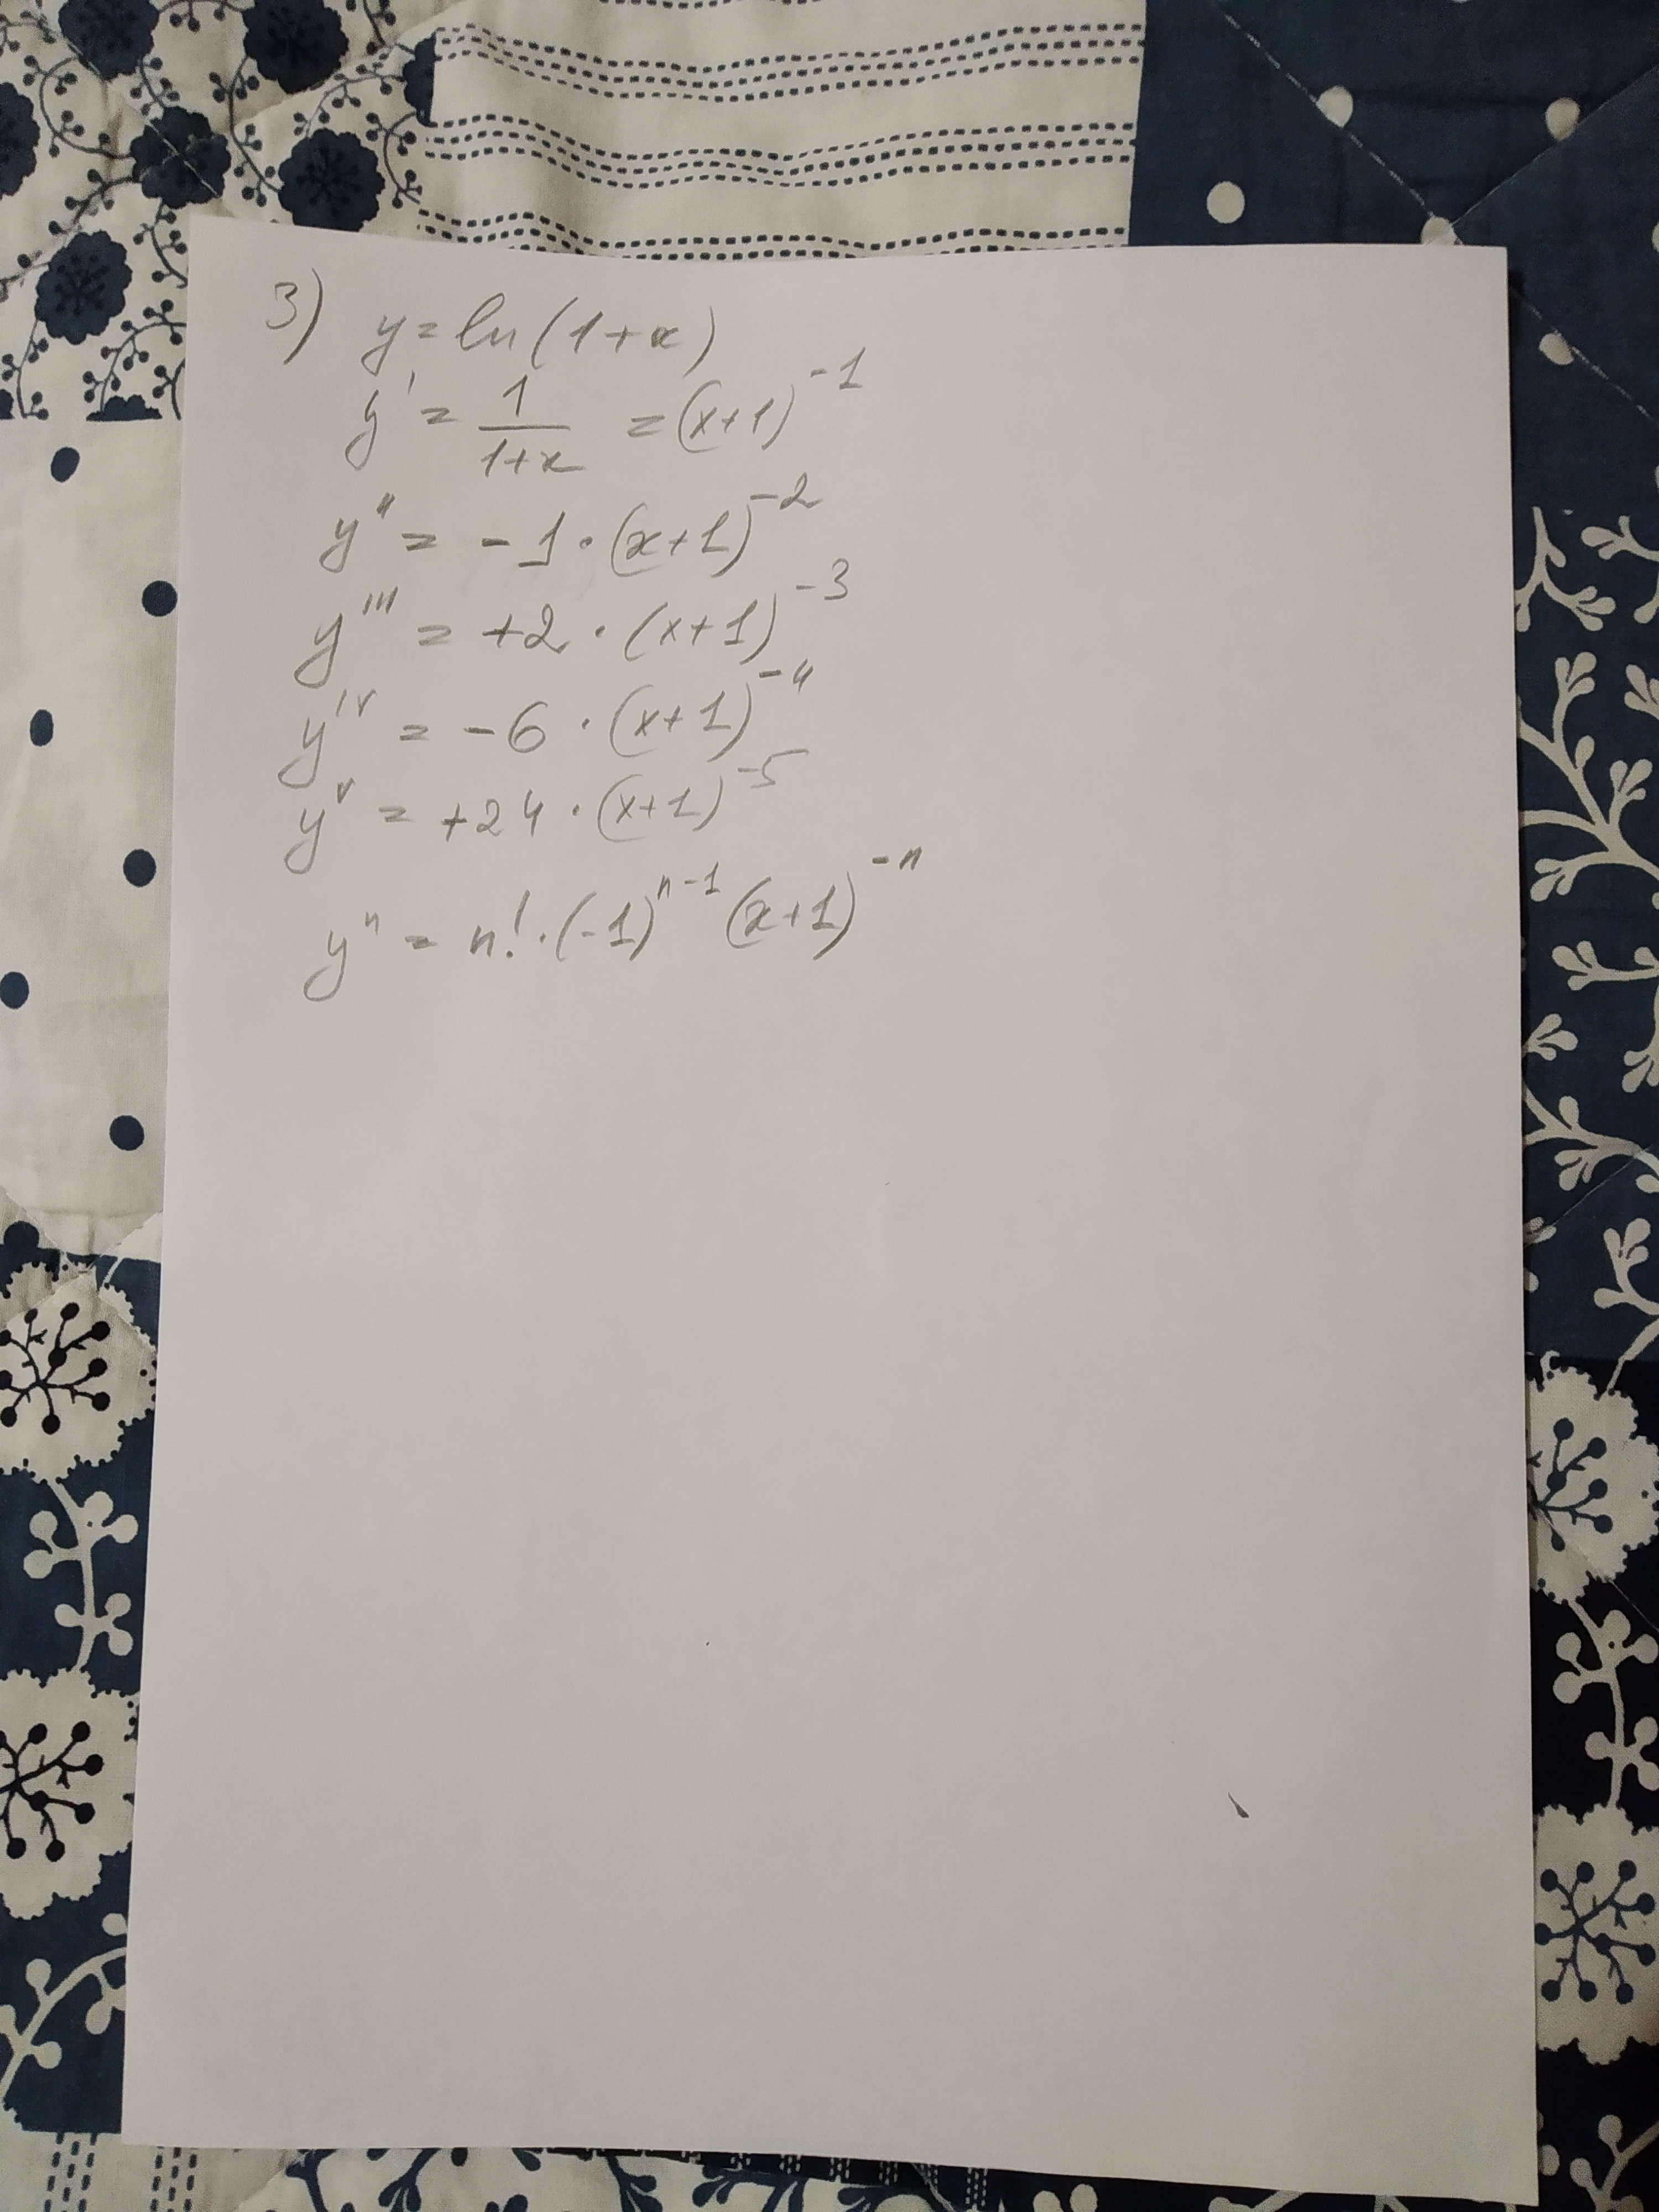 3) y = ln(1+x)
y' = 1/(1+x) = (x+1)^-1
y'' = -1·(x+1)^-2
y''' = +2·(x+1)^-3
y^IV = -6·(x+1)^-4
y^V = +24·(x+1)^-5
y^n = n!·(-1)^n-1 (x+1)^-n